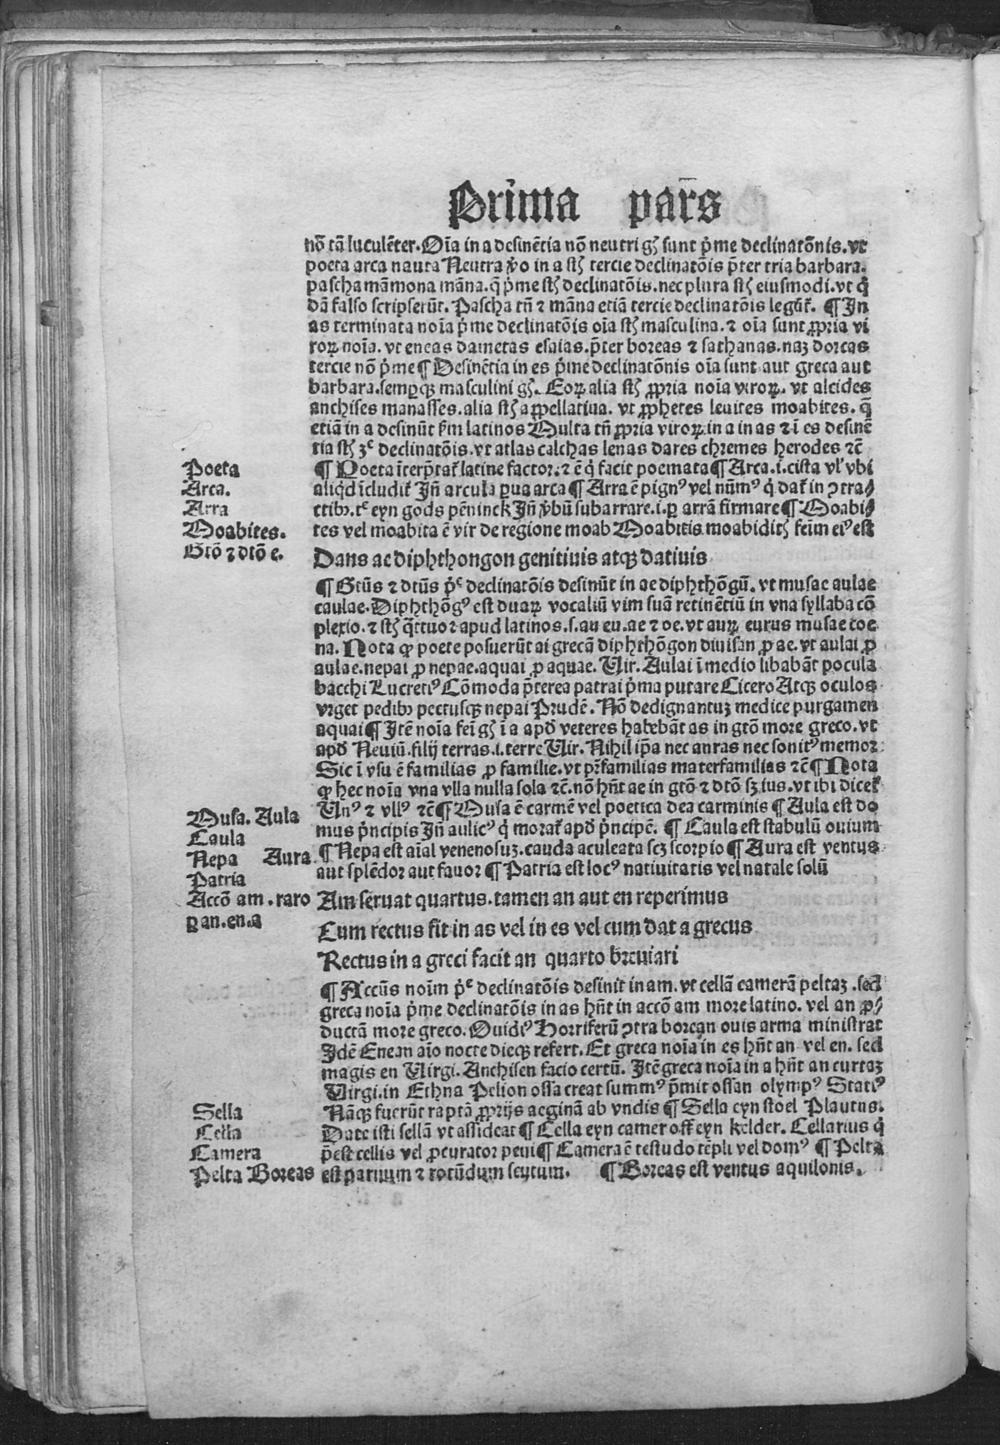 Prima pars
nõ tã luculẽter. Oĩa in a desinẽtia nõ neutri gñs sunt p̃me declinatõnis. vt
poeta arca nauta Neutra v̾o in a st̃ tercie declinatõis p̃ter tria barbara.
pascha mãmona mãna. q̃ p̃me st̃ declinatõis. nec plura st̃ eiusmodi. vt q̃
dã falso scripserũt. Pascha tñ ⁊ mãna etiã tercie declinatõis legũt̃. ¶ In
as terminata noĩa p̃me declinatõis oĩa st̃ masculina. ⁊ oĩa sunt ꝓpria vi
roꝝ noĩa. vt eneas dametas esaias. p̃ter boreas ⁊ sathanas. naꝫ dorcas
tercie nõ p̃me ¶ Desinẽtia in es p̃me declinatõnis oĩa sunt aut greca aut
barbara. semꝑqꝫ masculini gñs. Eoꝝ alia st̃ ꝓpria noĩa viroꝝ. vt alcides
anchises manasses. alia st̃ appellatiua. vt ꝓphetes leuites moabites. q̃
etiã in a desinũt ẜm latinos Multa tñ ꝓpria viroꝝ in a in as ⁊ ĩ es desinẽ
tia st̃ 3ᵉ declinatõis. vt atlas calchas lenas dares chremes herodes ⁊c̃
Poeta ¶ Poeta ĩterp̃tat̃ latine factor. ⁊ ẽ q̃ facit poemata ¶ Arca .i. cista vl̾ vbi
Arca. aliq̃d ĩcludit̃ Jñ arcula ꝑua arca ¶ Arra ẽ pignꝰ vel nũmꝰ q̃ dat̃ in ꝯtra⸗
Arra ctibꝫ. tc̃ eyn gods pẽninck Jñ v̾bũ subarrare .i. ꝑ arrã firmare ¶ Moabi⸗
Moabites. tes vel moabita ẽ vir de regione moab Moabitis moabidis feĩm eiꝰ est
Gtõ ⁊ dtõ e. Dans ae diphthongon genitiuis atqꝫ datiuis
¶ Gtũs ⁊ dtũs p̃ᵉ declinatõis desinũt in ae diphthõgũ. vt musae aulae
caulae. Diphthõgꝰ est duaꝝ vocaliũ vim suã retinẽtiũ in vna syllaba cõ
plexio. ⁊ st̃ q̃ttuor apud latinos .s. au eu. ae ⁊ oe. vt auꝝ eurus musae coe
na. Nota ꝙ poete posuerũt ai grecã diphthõgon diuisan ꝓ ae. vt aulai ꝓ
aulae. nepai ꝓ nepae. aquai ꝓ aquae. Uir. Aulai ĩ medio libabãt pocula
bacchi Lucretiꝰ Cõmoda p̃terea patrai p̃ma putare Cicero Atqꝫ oculos
vrget pedibꝫ pectusqꝫ nepai Prudẽ. Nõ dedignantuꝫ medice purgamen
aquai ¶ Jtẽ noĩa feĩ gñs ĩ a apď veteres habebãt as in gtõ more greco. vt
apď Neuiũ. filij terras .i. terre Uir. Nihil ip̃a nec auras nec sonitꝰ memor
Sic ĩ vsu ẽ familias ꝓ familie. vt pr̃familias materfamilias ⁊c̃ ¶ Nota
ꝙ hec noĩa vna vlla nulla sola ⁊c̃. nõ hñt ae in gtõ ⁊ dtõ sꝫ ius. vt ibi dicet̃
Musa. Aula Unꝰ ⁊ vllꝰ ⁊c̃ ¶ Musa ẽ carmẽ vel poetica dea carminis ¶ Aula est do
Caula mus p̃ncipis Jñ aulicꝰ q̃ morat̃ apď p̃ncipẽ. ¶ Caula est stabulũ ouium
Nepa Aura ¶ Nepa est aĩal venenosuꝫ. cauda aculeata scꝫ scorpio ¶ Aura est ventus
Patria aut splẽdor aut fauor ¶ Patria est locꝰ natiuitatis vel natale solũ
Accõ am. raro Am seruat quartus. tamen an aut en reperimus
ꝑ an. en. a Cum rectus fit in as vel in es vel cum dat a grecus
Rectus in a greci facit an quarto breuiari
¶ Accũs noĩm p̃ᵉ declinatõis desinit in am. vt cellã camerã peltaꝫ. sed
greca noĩa p̃me declinatõis in as hñt in accõ am more latino. vel an ꝓ⸗
ductã more greco. Ouidiꝰ Horriferũ ꝯtra borean ouis arma ministrat
Jdẽ Enean aĩo nocte dieqꝫ refert. Et greca noĩa in es hñt an vel en. sed
magis en Uirgi. Anchisen facio certũ. Jtẽ greca noĩa in a hñt an curtaꝫ
Uirgi. in Ethna Pelion ossa creat summꝰ p̃mit ossan olympꝰ Statiꝰ
Sella Nãqꝫ fuerũt raptã ꝓprijs aeginã ab vndis ¶ Sella eyn stoel Plautus.
Cella Date isti sellã vt assideat ¶ Cella eyn camer off eyn kelder. Cellarius q̃
Camera p̃est cellis vel ꝓcurator peui ¶ Camera ẽ testudo tẽpli vel domꝰ ¶ Pelta
Pelta Boreas est paruum ⁊ rotũdum scutum. ¶ Boreas est ventus aquilonis.